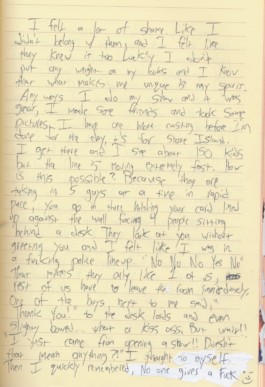 I felt a lot of shame like I
didn't belong w/ them and I felt like
they knew it too. Luckily I don't
put any weight on my looks and I know
that what makes me unique is my spirit.
Anyways I do my show and it was
great. I made some friends and took some
pictures. I have one more casting before I'm
done for the day, it's for Stone Island.
I get there and I see about 150 kids
but the line is moving extremely fast. How
is this possible? Because they are
taking in 5 guys at a time in rapid
pace. You go in there holding your card lined
up against the wall facing 4 people sitting
behind a desk. They look at you without
greeting you and I felt like I was in
a fucking police line up. "No No No Yes No"
That makes they only like 1 of us
rest of us have to leave the room immediately.
One of the boys next to me said,
"Thank You" to the desk loads and even
slightly bowed. What a kiss ass. But wait!!
I just came from opening a show!! Doesn't
that mean anything?" I thought to myself.
Then I quickly remembered, No one gives a fuck